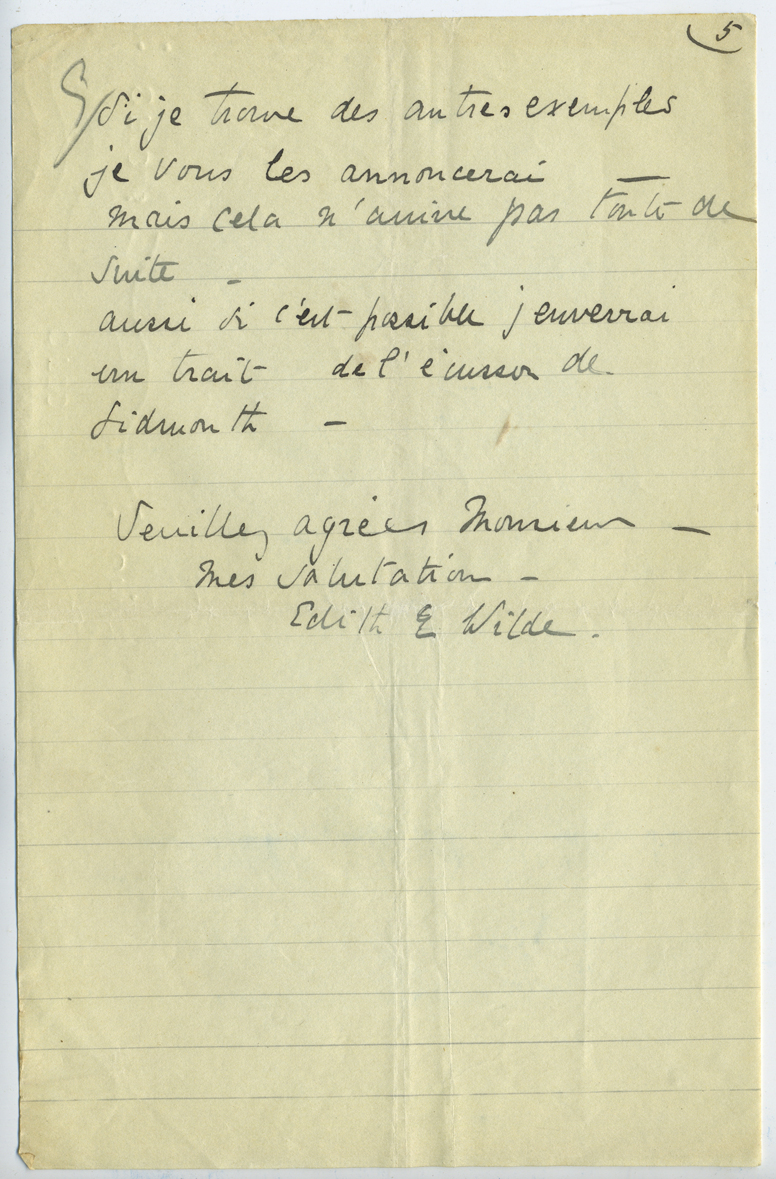 5
Si je trouve des autres exemples
je vous les annoncerai —
mais cela n'arrive pas toute de
suite -
aussi si c'est possible j'enverrai
un trait de l'écusson de
Sidmouth -
Veuillez agréer Monsieur -
mes salutation -
Edith E Wilde.